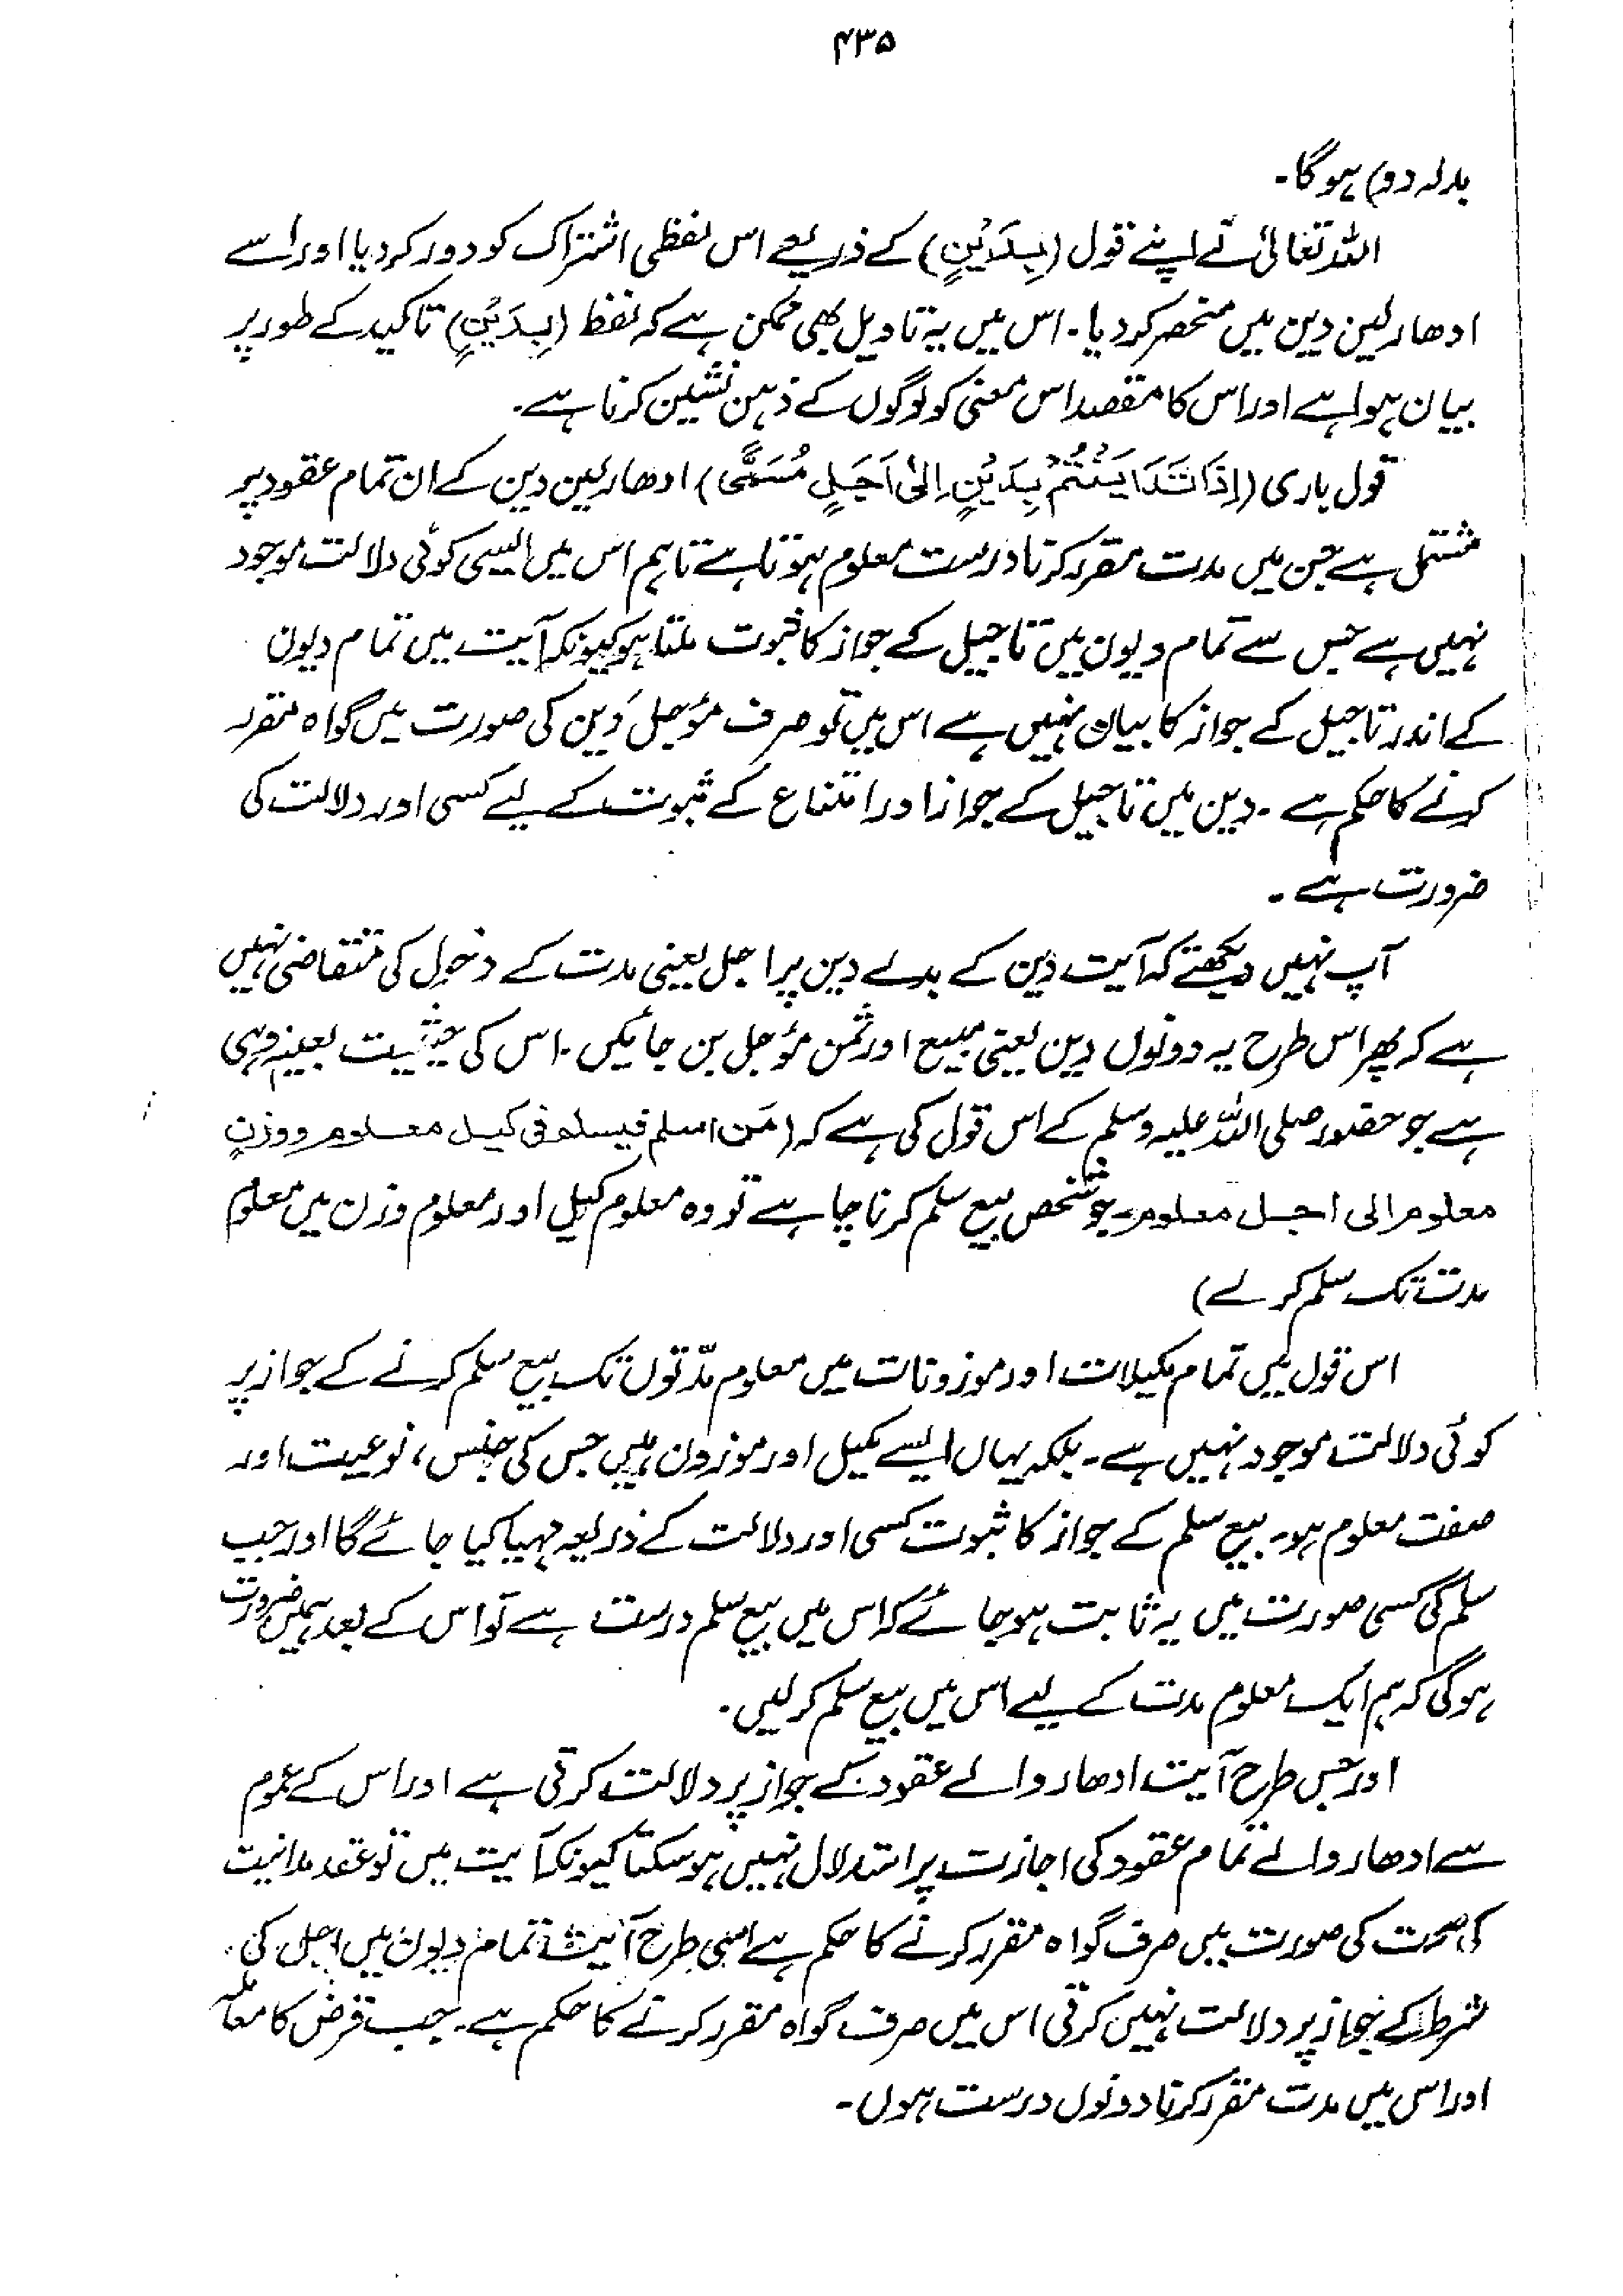 ۴۳۵
بدلہ دو) ہوگا۔
اللہ تعالیٰ نے اپنے قول (بِدَیْنٍ) کے ذریعے اس لفظی اشتراک کو دور کر دیا اور اسے
ادھار لین دین میں منحصر کر دیا۔ اس میں یہ تاویل بھی ممکن ہے کہ لفظ (بِدَیْنٍ) تاکید کے طور پر
بیان ہوا ہے اور اس کا مقصد اس معنی کو لوگوں کے ذہن نشین کرنا ہے۔
قول باری (اِذَا تَدَایَنْتُمْ بِدَیْنٍ اِلیٰ اَجَلٍ مُسَمًّی) ادھار لین دین کے ان تمام عقود پر
مشتمل ہے جن میں مدت مقرر کرنا درست معلوم ہوتا ہے تاہم اس میں ایسی کوئی دلالت موجود
نہیں ہے جس سے تمام دیون میں تاجیل کے جواز کا ثبوت ملتا ہو کیونکہ آیت میں تمام دیون
کے اندر تاجیل کے جواز کا بیان نہیں ہے اس میں تو صرف مؤجل دَین کی صورت میں گواہ مقرر
کرنے کا حکم ہے۔ دین میں تاجیل کے جواز اور امتناع کے ثبوت کے لیے کسی اور دلالت کی
ضرورت ہے۔
آپ نہیں دیکھتے کہ آیت دین کے بدلے دین پر اجل یعنی مدت کے دخول کی متقاضی نہیں
ہے کہ پھر اس طرح یہ دونوں دین یعنی مبیع اور ثمن مؤجل بن جائیں۔ اس کی حیثیت بعینہٖ وہی
ہے جو حضور صلی اللہ علیہ وسلم کے اس قول کی ہے کہ (مَن اسلم فیسلم فی کیل معلوم ووزنٍ
معلوم الی اجل معلوم۔ جو شخص بیع سلم کرنا چاہے تو وہ معلوم کیل اور معلوم وزن میں معلوم
مدت تک سلم کر لے)
اس قول میں تمام مکیلات اور موزونات میں معلوم مدّتوں تک بیع سلم کرنے کے جواز پر
کوئی دلالت موجود نہیں ہے۔ بلکہ یہاں ایسے مکیل اور موزون ہیں جس کی جنس، نوعیت اور
صفت معلوم ہو۔ بیع سلم کے جواز کا ثبوت کسی اور دلالت کے ذریعہ مہیا کیا جائے گا اور جب
سلم کی کسی صورت میں یہ ثابت ہو جائے کہ اس میں بیع سلم درست ہے تو اس کے بعد ہمیں ضرورت
ہوگی کہ ہم ایک معلوم مدت کے لیے اس میں بیع سلم کر لیں۔
اور جس طرح آیت ادھار والے عقود کے جواز پر دلالت کرتی ہے اور اس کے عموم
سے ادھار والے تمام عقود کی اجازت پر استدلال نہیں ہو سکتا کیونکہ آیت میں تو عقد مداینت
کی صحت کی صورت میں صرف گواہ مقرر کرنے کا حکم ہے اسی طرح آیت تمام دیون میں اجل کی
شرط کے جواز پر دلالت نہیں کرتی اس میں صرف گواہ مقرر کرنے کا حکم ہے۔ جب قرض کا معاملہ
اور اس میں مدت مقرر کرنا دونوں درست ہوں۔